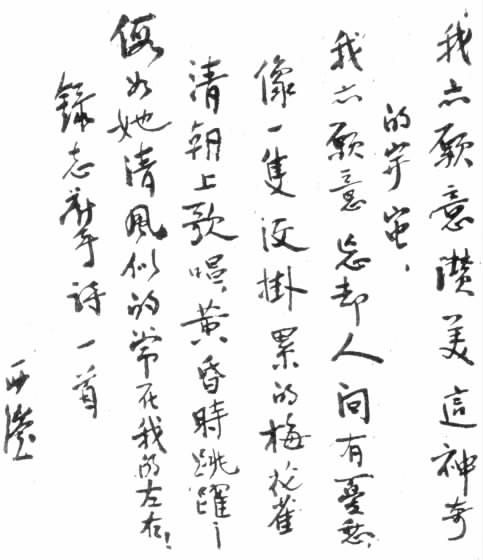 我亦願意讚美這神奇
的宇宙，
我亦願意忘却人間有憂愁，
像一隻沒掛累的梅花雀
清朝上歌唱，黃昏時跳躍；
假如她清風似的常在我的左右！
錄志摩詩一首
西瀅